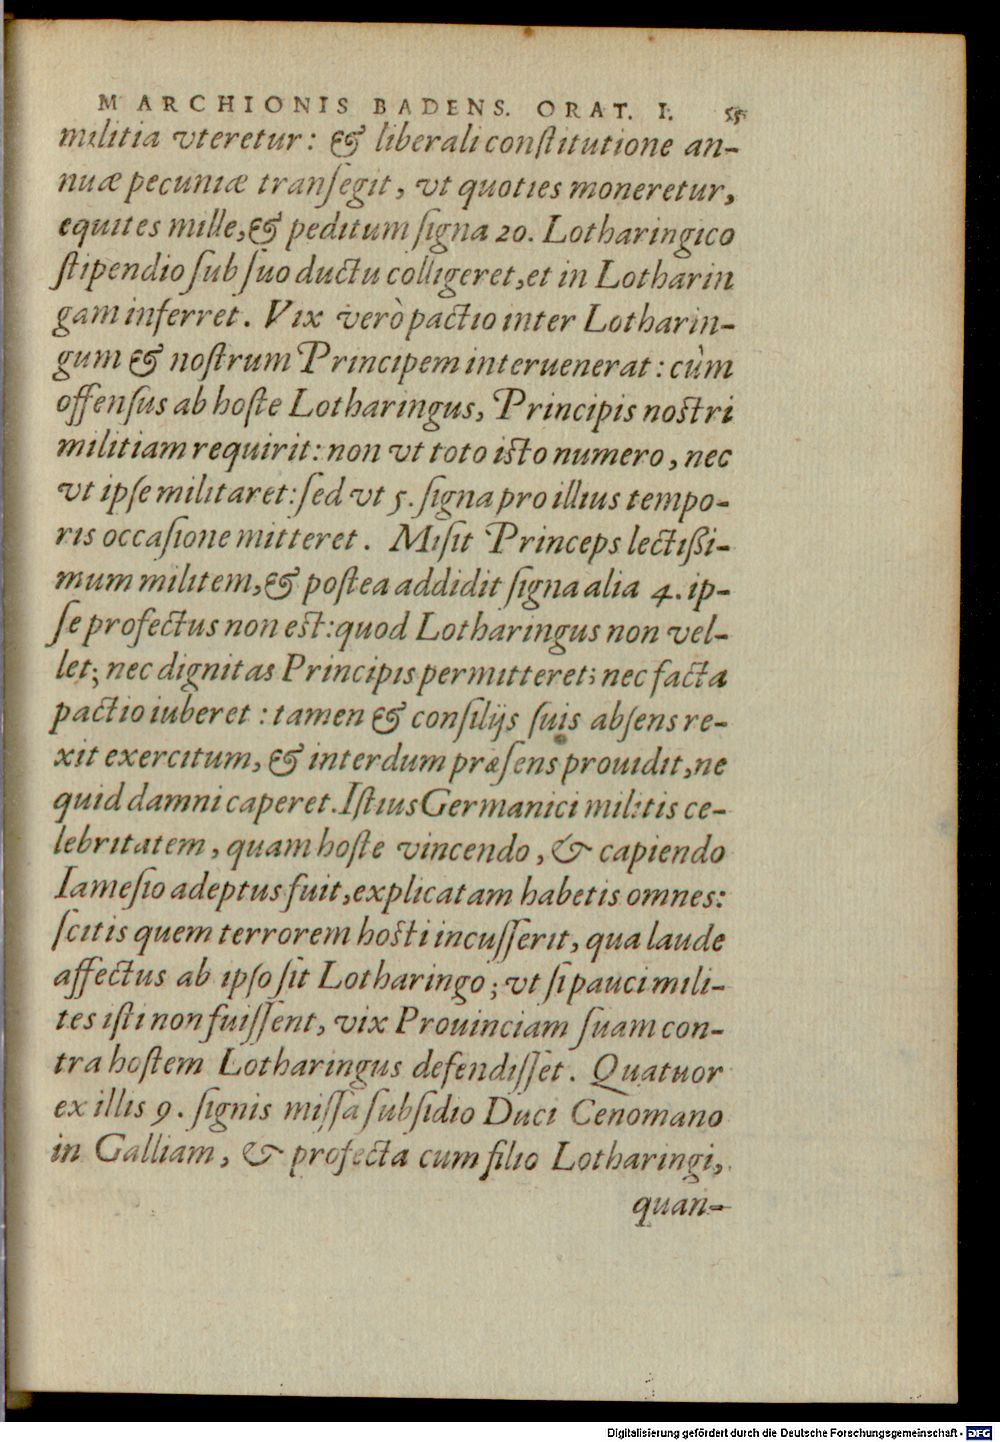 MARCHIONIS BADENS. ORAT. I. 55
militia vteretur: & liberali constitutione an-
nuæ pecuniæ transegit, vt quoties moneretur,
equites mille,& peditum signa 20. Lotharingico
stipendio sub suo ductu colligeret,et in Lotharin
gam inferret. Vix verò pactio inter Lotharin-
gum & nostrum Principem interuenerat: cùm
offensus ab hoste Lotharingus, Principis nostri
militiam requirit: non vt toto isto numero, nec
vt ipse militaret: sed vt 5. signa pro illius tempo-
ris occasione mitteret. Misit Princeps lectißi-
mum militem,& postea addidit signa alia 4. ip-
se profectus non est: quod Lotharingus non vel-
let; nec dignitas Principis permitteret; nec facta
pactio iuberet: tamen & consilijs suis absens re-
xit exercitum, & interdum præsens prouidit, ne
quid damni caperet. Istius Germanici militis ce-
lebritatem, quam hoste vincendo, & capiendo
Iamesio adeptus fuit, explicatam habetis omnes:
scitis quem terrorem hosti incusserit, qua laude
affectus ab ipso sit Lotharingo; vt si pauci mili-
tes isti non fuissent, vix Prouinciam suam con-
tra hostem Lotharingus defendisset. Quatuor
ex illis 9. signis missa subsidio Duci Cenomano
in Galliam, & profecta cum filio Lotharingi,
quan-
Digitalisierung gefördert durch die Deutsche Forschungsgemeinschaft - DFG